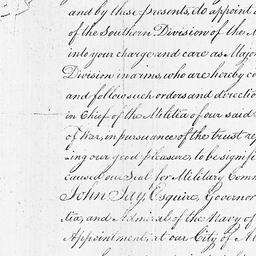 and by these presents, do appoint
of the Southern Division of the
into your charge and care as Major
Division in arms, who are hereby co
and follow such orders and directio
in Chief of the Militia of our said
of War, in pursuance of the trust re
-ing our good pleasure, to be signifi
caused our Seal for Military Comm
John Jay, Esquire, Governor
-tia, and Admiral of the Navy of
Appointment, at our City of Al